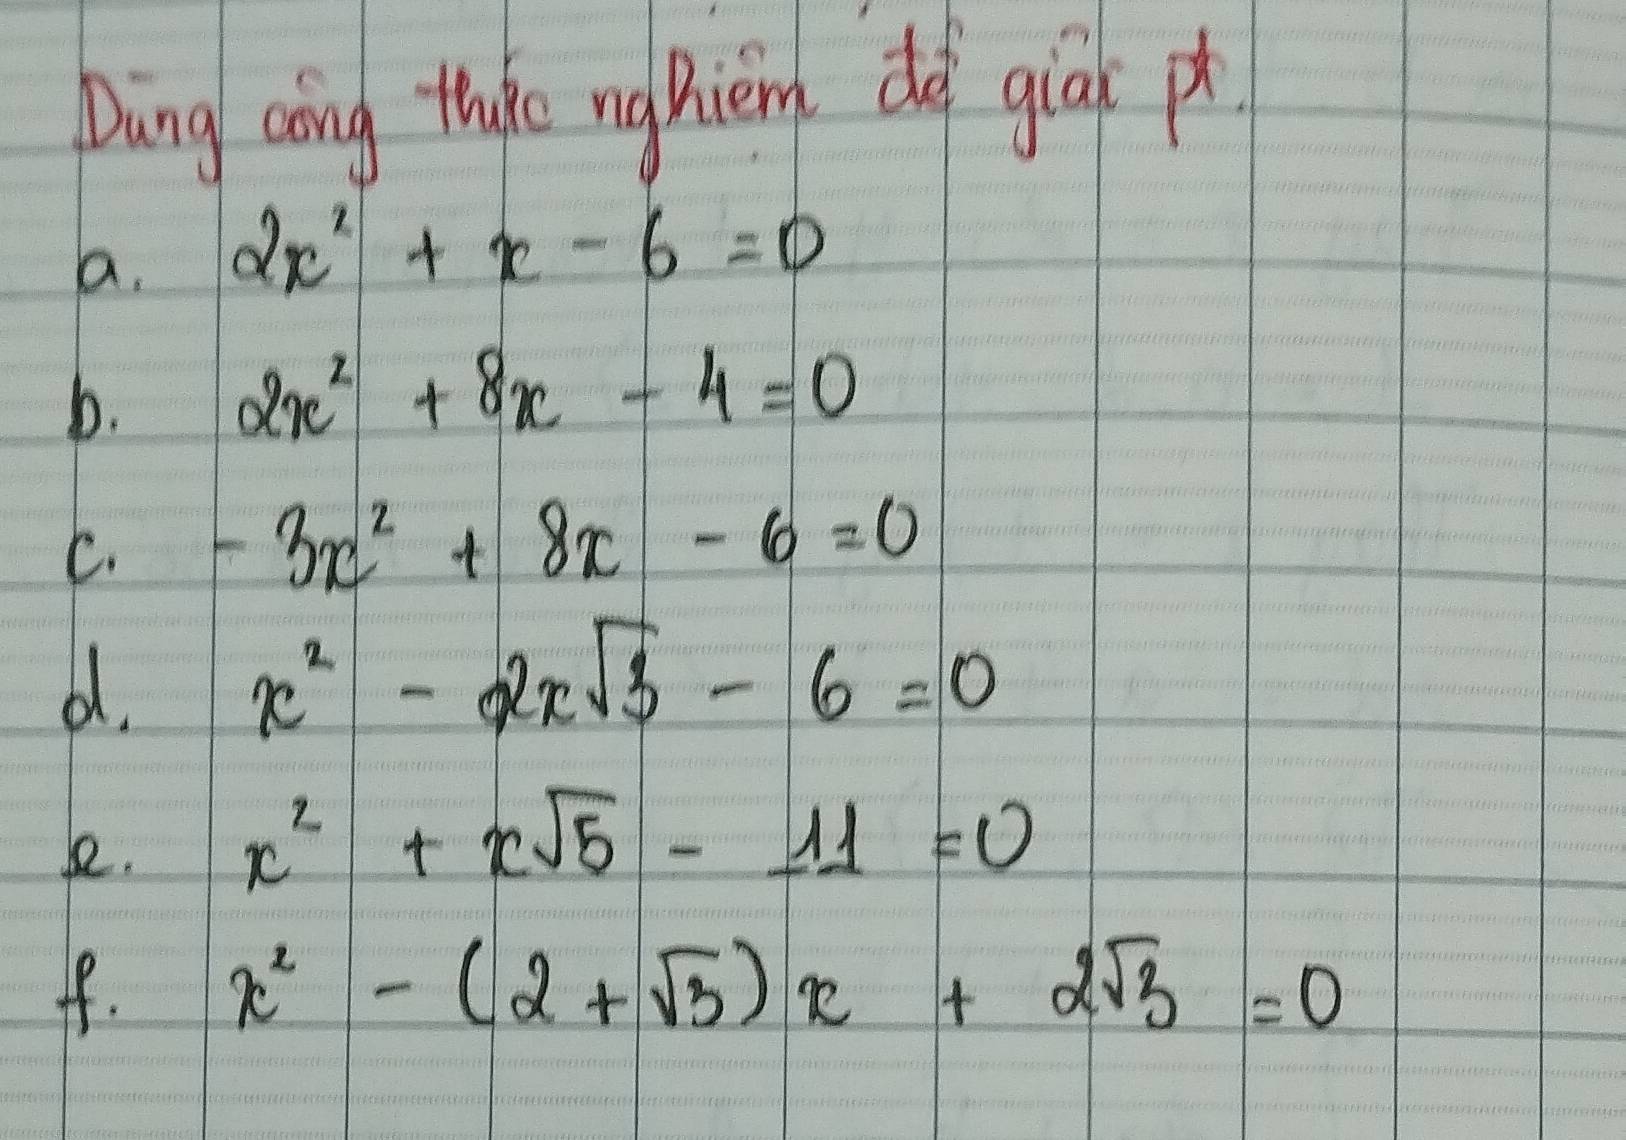 Dùng công thức nghiệm để giải pt.
a. 2x² + x - 6 = 0
b. 2x² + 8x - 4 = 0
c. - 3x² + 8x - 6 = 0
d. x² - 2x√3 - 6 = 0
e. x² + x√5 - 11 = 0
f. x² - (2 + √3) x + 2√3 = 0